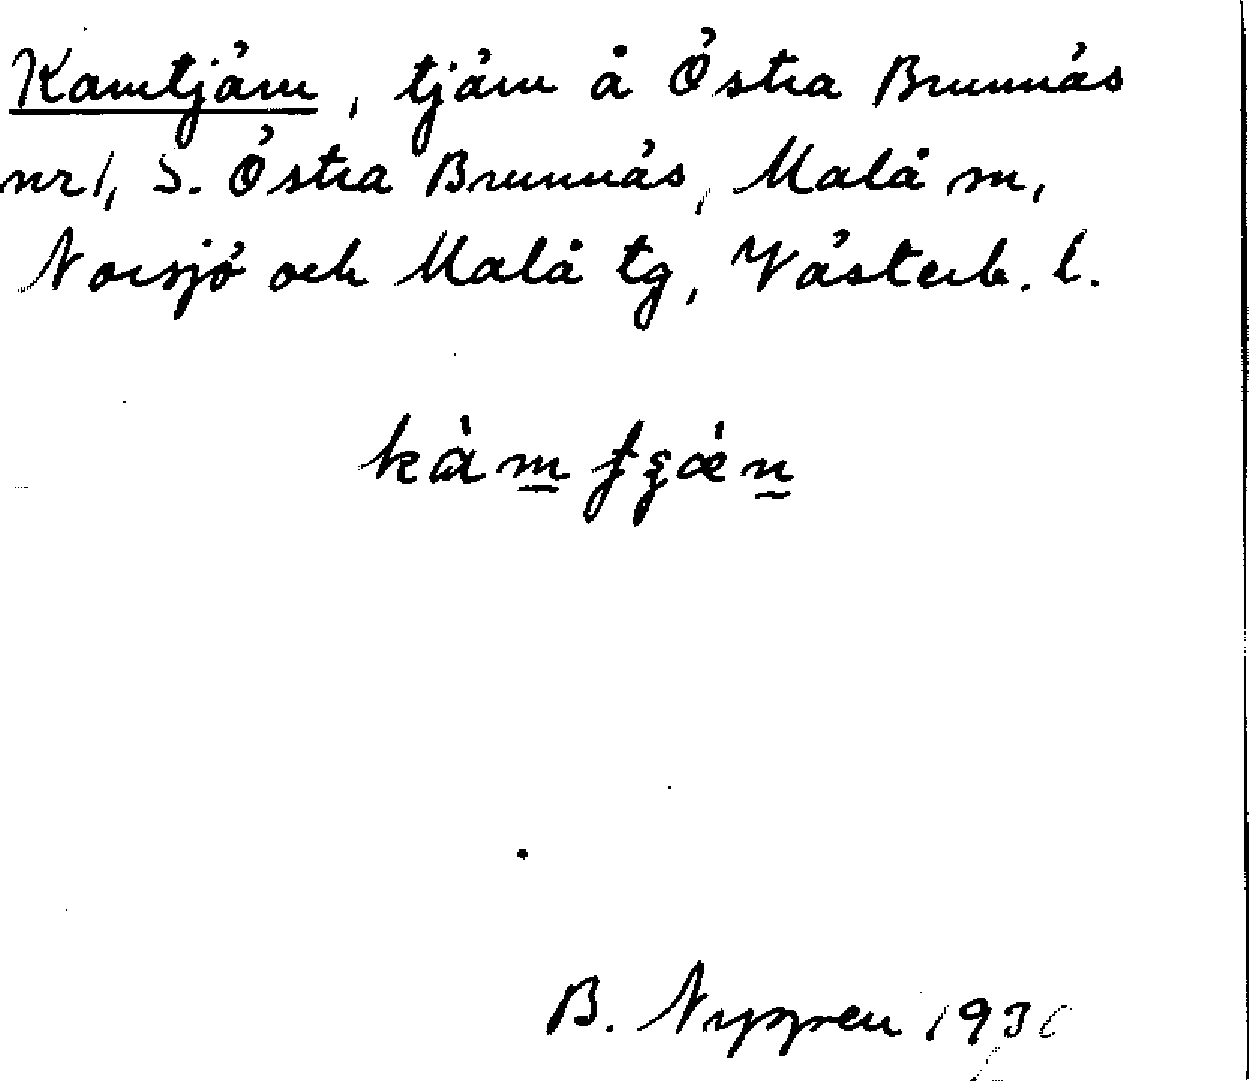 Kamtjärn, tjärn å Östra Brunnäs
nr 1, S. Östra Brunnäs, Malå sn,
Norsjö och Malå tg, Västerb. l.
kàm̲
B. Nygren